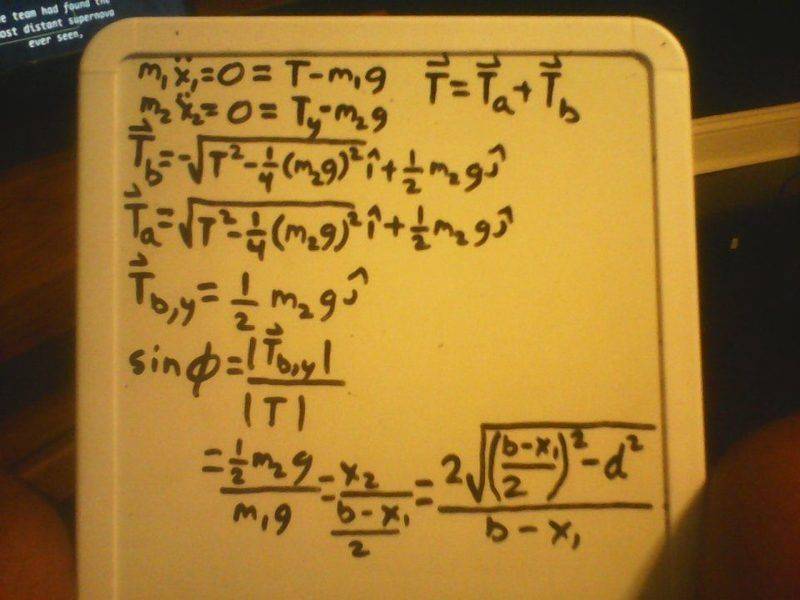 e team had found the
ost distant supernova
ever seen,
m₁ẍ₁=0=T-m₁g
T⃗=T⃗ₐ+T⃗_b
m₂ẍ₂=0=T_y-m₂g
T⃗_b=-√(T²-¼(m₂g)²) î+½m₂gĵ
T⃗ₐ=√(T²-¼(m₂g)²) î+½m₂gĵ
T⃗_b,y=½m₂gĵ
sinϕ=|T⃗_b,y|/|T|
=(½m₂g)/(m₁g)=x₂/((b-x₁)/2)=2√(((b-x₁)/2)²-d²)/(b-x₁)